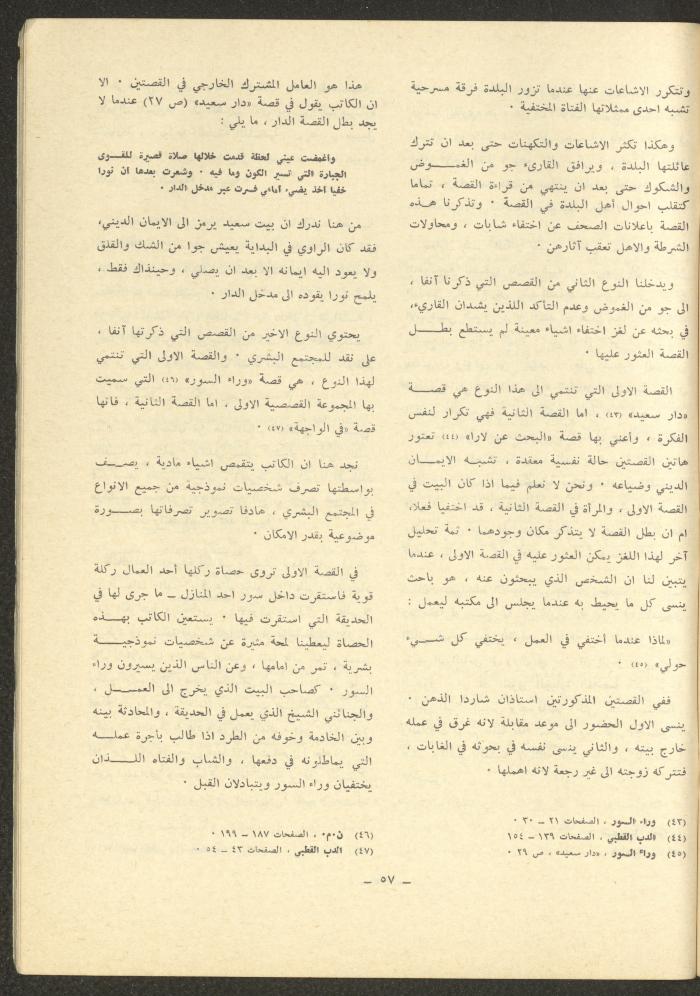 وتتكرر الاشاعات عنها عندما تزور البلدة فرقة مسرحية
تشبه احدى ممثلاتها الفتاة المختفية ٠
وهكذا تكثر الاشاعات والتكهنات حتى بعد ان تترك
عائلتها البلدة ، ويرافق القارىء جو من الغمـــوض
والشكوك حتى بعد ان ينتهي من قراءة القصة ، تماما
كتقلب احوال أهل البلدة في القصة ٠ وتذكرنا هـــذه
القصة باعلانات الصحف عن اختفاء شابات ، ومحاولات
الشرطة والاهل تعقب آثارهن ٠
ويدخلنا النوع الثاني من القصص التي ذكرنا آنفا ،
الى جو من الغموض وعدم التأكد اللذين يشدان القاريء،
في بحثه عن لغز اختفاء اشياء معينة لم يستطع بطـــل
القصة العثور عليها ٠
القصة الاولى التي تنتمي الى هذا النوع هي قصـــة
«دار سعيد» (٤٣) ، اما القصة الثانية فهي تكرار لنفس
الفكرة ، وأعني بها قصة «البحث عن لارا» (٤٤) تعتور
هاتين القصتين حالة نفسية معقدة ، تشبـه الايمــان
الديني وضياعه ٠ ونحن لا نعلم فيما اذا كان البيت في
القصة الاولى ، والمرأة في القصة الثانية ، قد اختفيا فعلا،
ام ان بطل القصة لا يتذكر مكان وجودهما ٠ ثمة تحليل
آخر لهذا اللغز يمكن العثور عليه في القصة الاولى ، عندما
يتبين لنا ان الشخص الذي يبحثون عنه ، هو باحث
ينسى كل ما يحيط به عندما يجلس الى مكتبه ليعمل :
«لماذا عندما أختفي في العمل ، يختفي كل شـــيء
حولي» (٤٥) ٠
ففي القصتين المذكورتين استاذان شاردا الذهن ٠
ينسى الاول الحضور الى موعد مقابلة لانه غرق في عمله
خارج بيته ، والثاني ينسى نفسه في بحوثه في الغابات ،
فتتركه زوجته الى غير رجعة لانه اهملها ٠
(٤٣) وراء السور ، الصفحات ٢١ – ٣٠ ٠
(٤٤) الدب القطبي ، الصفحات ١٣٩ – ١٥٤
(٤٥) وراء السور ، «دار سعيد» ، ص ٢٩ ٠
هذا هو العامل المشترك الخارجي في القصتين ٠ الا
ان الكاتب يقول في قصة «دار سعيد» (ص ٢٧) عندما لا
يجد بطل القصة الدار ، ما يلي :
واغمضت عيني لحظة قدمت خلالها صلاة قصيرة للقــوى
الجبارة التي تسير الكون وما فيه ٠ وشعرت بعدها ان نورا
خفيا أخذ يضيء أمامي فسرت عبر مدخل الدار ٠
من هنا ندرك ان بيت سعيد يرمز الى الايمان الديني،
فقد كان الراوي في البداية يعيش جوا من الشك والقلق
ولا يعود اليه ايمانه الا بعد ان يصلي ، وحينذاك فقط ،
يلمح نورا يقوده الى مدخل الدار ٠
يحتوي النوع الاخير من القصص التي ذكرتها آنفا ،
على نقد للمجتمع البشري ٠ والقصة الاولى التي تنتمي
لهذا النوع ، هي قصة «وراء السور» (٤٦) التي سميت
بها المجموعة القصصية الاولى ، اما القصة الثانية ، فانها
قصة «في الواجهة» (٤٧) ٠
نجد هنا ان الكاتب يتقمص اشياء مادية ، يصــف
بواسطتها تصرف شخصيات نموذجية من جميع الانواع
في المجتمع البشري ، هادفا تصوير تصرفاتها بصــورة
موضوعية بقدر الامكان ٠
في القصة الاولى تروى حصاة ركلها أحد العمال ركلة
قوية فاستقرت داخل سور احد المنازل – ما جرى لها في
الحديقة التي استقرت فيها ٠ يستعين الكاتب بهـــذه
الحصاة ليعطينا لمحة مثيرة عن شخصيات نموذجيـــة
بشرية ، تمر من امامها ، وعن الناس الذين يسيرون وراء
السور ٠ كصاحب البيت الذي يخرج الى العمـــل ،
والجنائني الشيخ الذي يعمل في الحديقة ، والمحادثة بينه
وبين الخادمة وخوفه من الطرد اذا طالب بأجرة عملـــه
التي يماطلونه في دفعها ، والشاب والفتاه اللـــذان
يختفيان وراء السور ويتبادلان القبل ٠
(٤٦) ن٠م٠ ، الصفحات ١٨٧ – ١٩٩ ٠
(٤٧) الدب القطبي ، الصفحات ٤٣ – ٥٤ ٠
– ٥٧ –